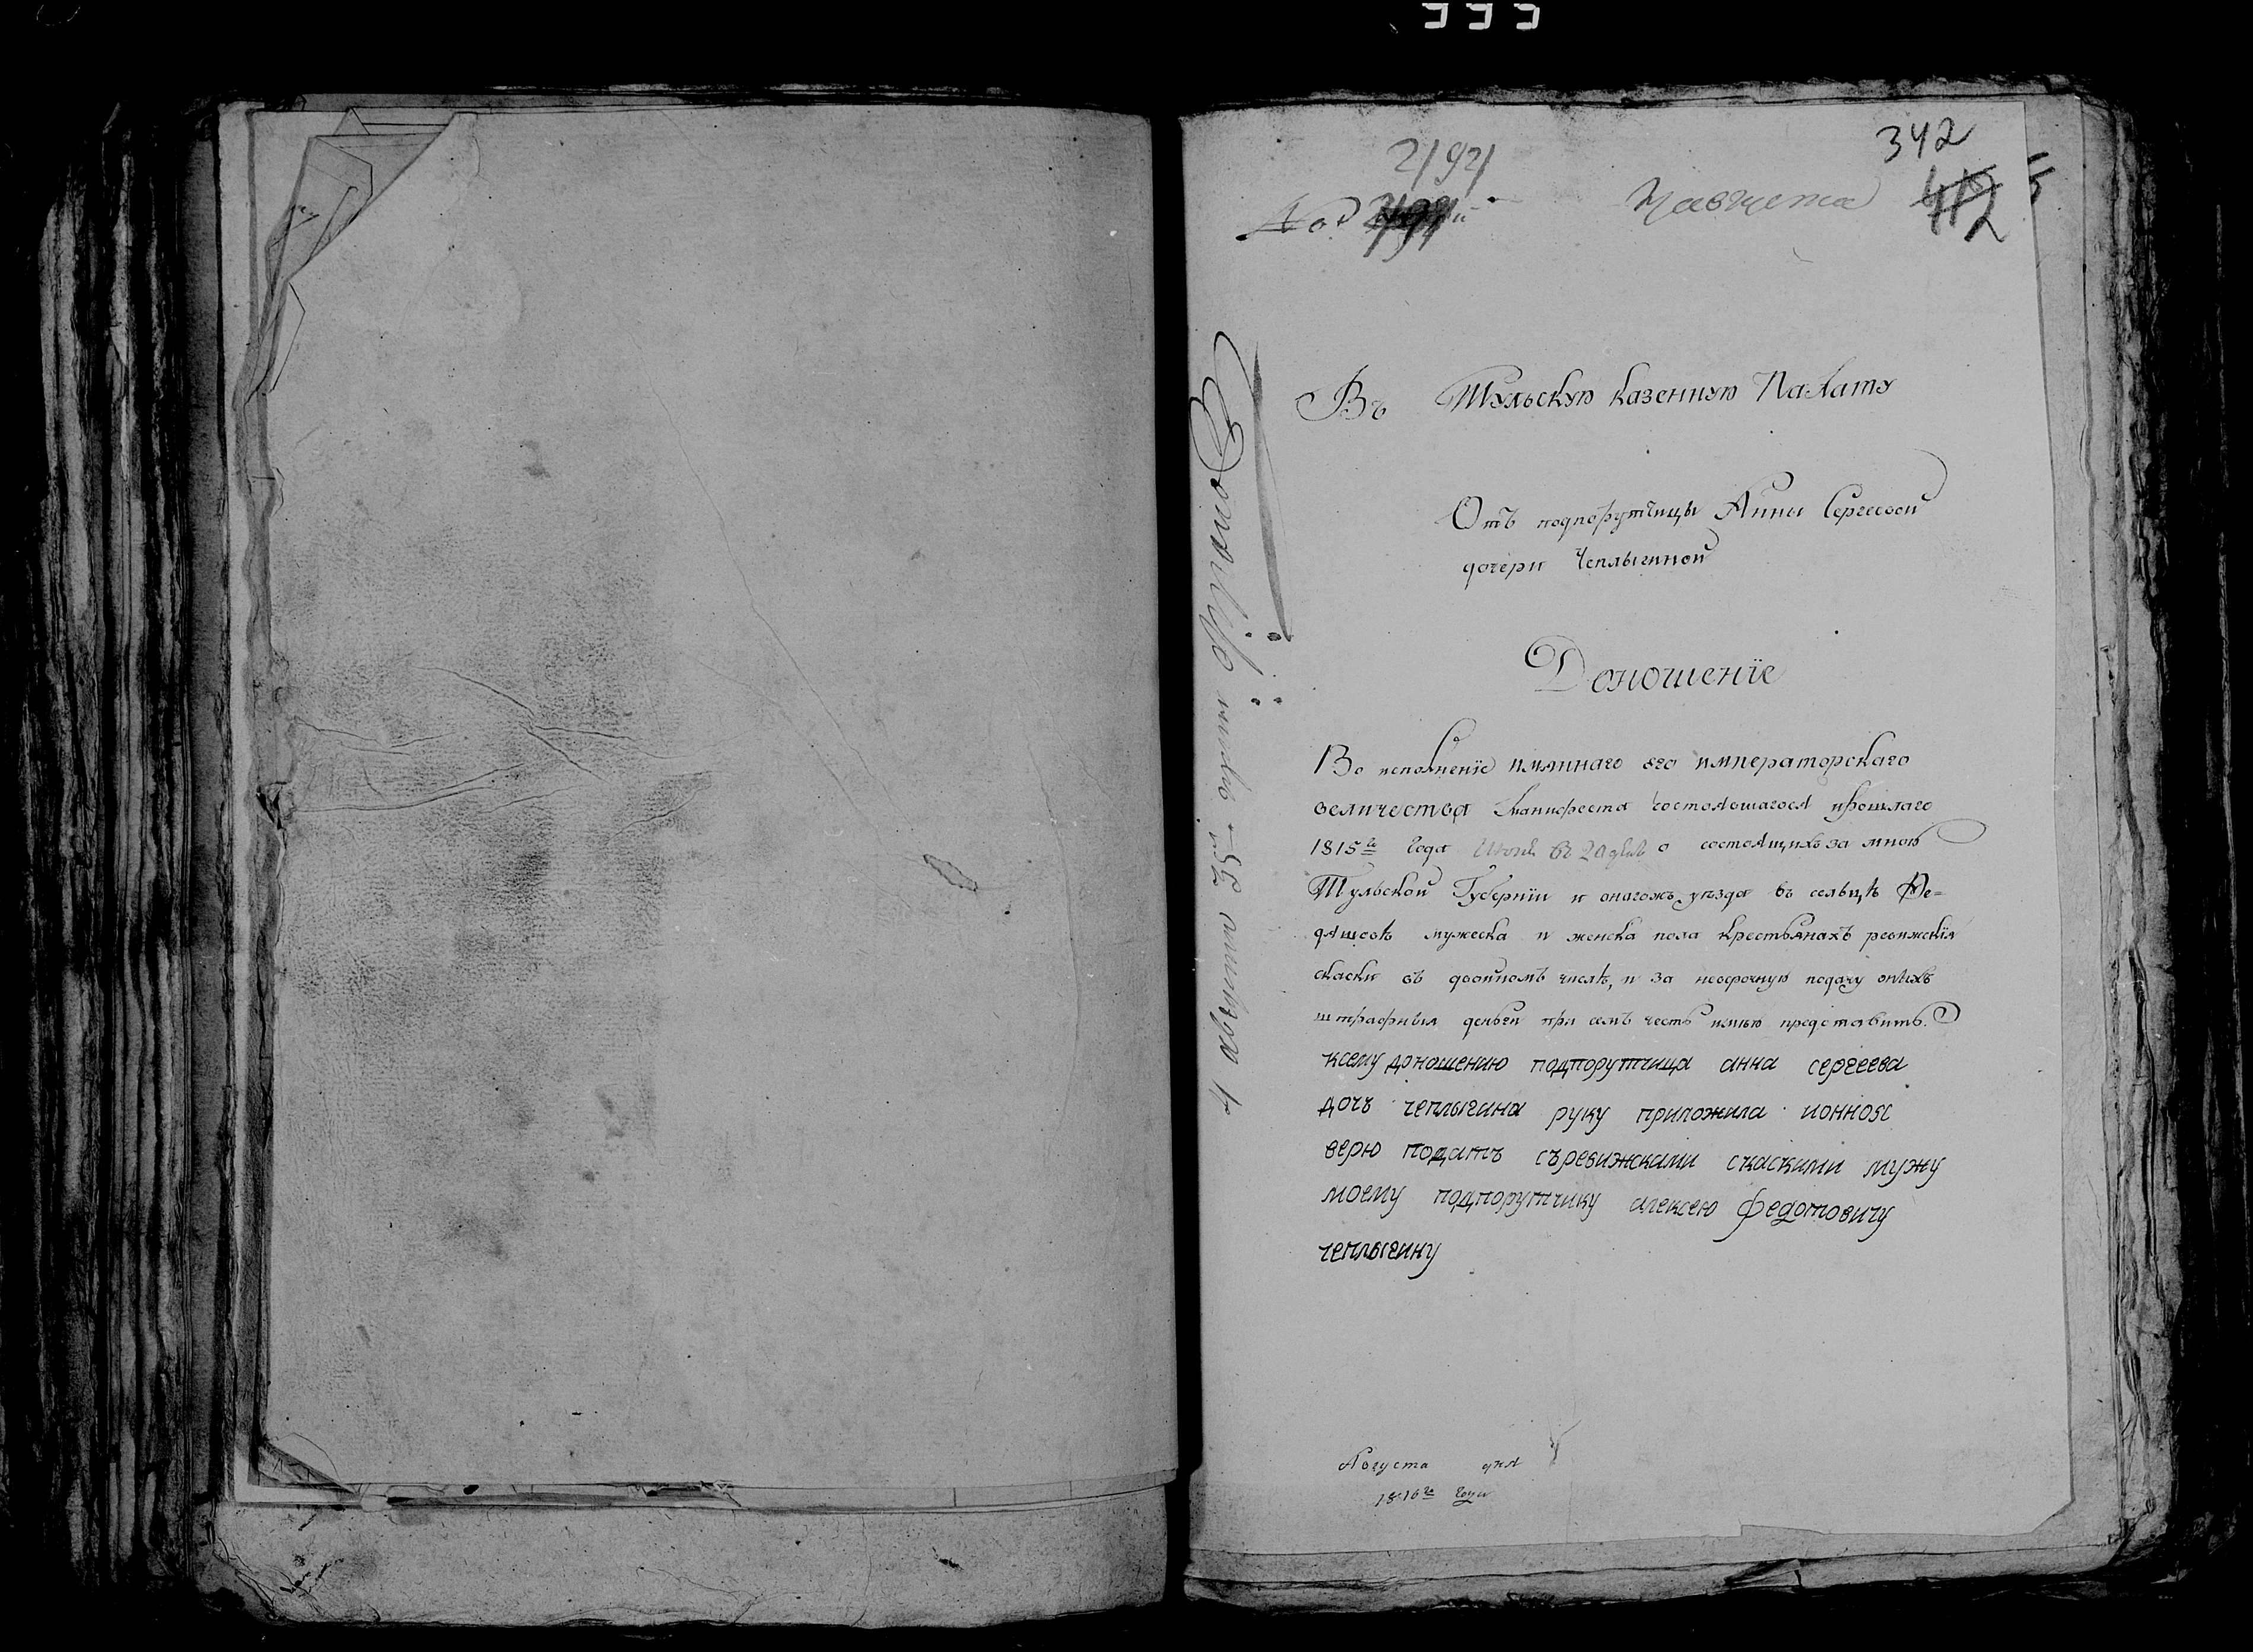 342
2192
Въ Тульскую казенную Палату
Отъ подпорутчицы Анны Сергеевой
дочери Чеплыгиной
Доношенїе
Во исполненїе имяннаго его императорскаго
величества манифеста состоявшагося прошлаго
1815го года Июня въ 20 день о состоящихъ за мною
Тульской Губернїи и оногожъ уезда въ сельцѣ Ре=
дящевѣ мужеска и женска пола крестьянахъ ревижскїя
скаски въ двойномъ числѣ, и за несрочную подачу оныхъ
штрафныя деньги при семъ честь имѣю представить.
ксему доношению подпорутчица анна сергеева
дочь чеплыгина руку приложила ионное
верю подать съревижскими скасками мужу
моему подпорутчику алексею федотовичу
чеплыгину
Августа дня
1816го года
4 августа